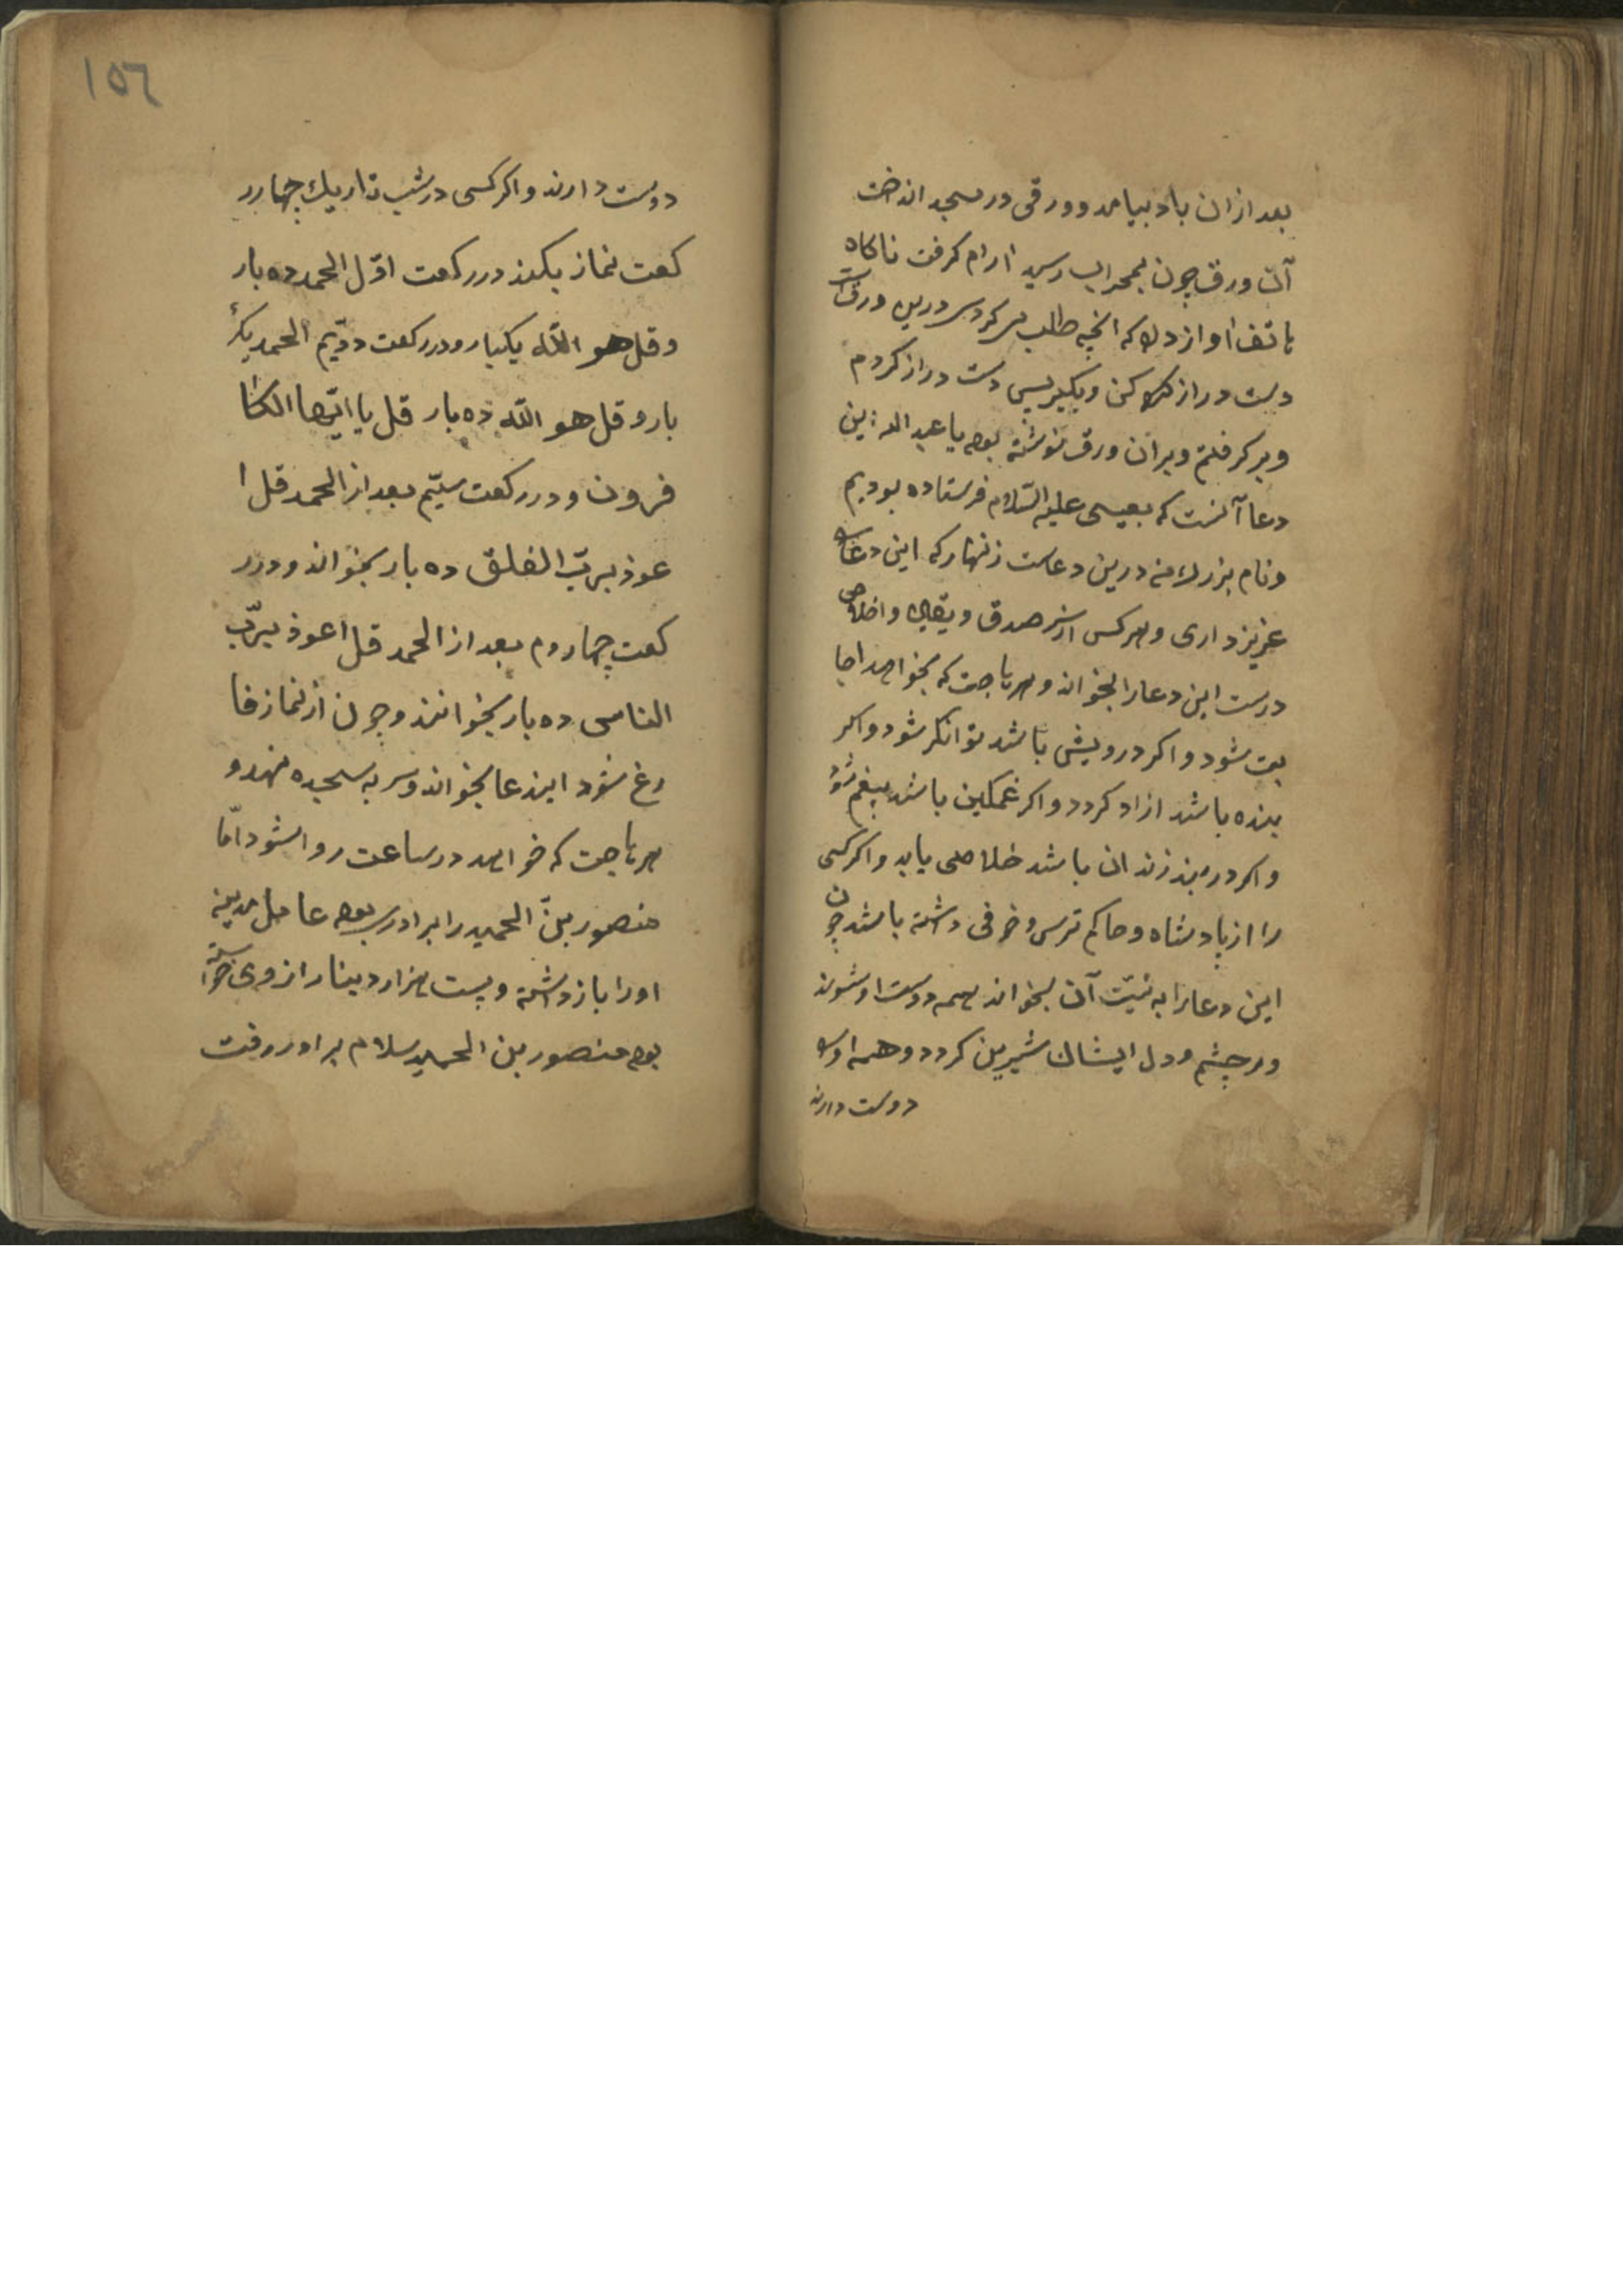 بعد ازان باد بیامد و ورقی در مسجد انداخت
آن ورق چون بمحراب رسید ارام کرفت ناکاه
هاتف اواز داد که انچه طلب می کردی درین ورقست
دست دراز کن و بکیر پس دست دراز کردم
و بر کرفتم و بران ورق نوشته بود یا عبد الله این
دعا آنست که بعیسی علیه السّلام فرستاده بودیم
و نام بزرك من درین دعاست زنهار که این دعا را
عزیز داری و هر کس از سر صدق و یقین و اخلاص
درست این دعا را بخواند و هر حاجت که بخواهد اجا
بت شود و اکر درویش باشد توانکر شود و اکر
بنده باشد ازاد کردد و اکر غمکین باشد بیغم شود
و اکر در بند زندان باشد خلاصی یابد و اکر کسی
را از پادشاه و حاکم ترس و خوفی داشته باشد چون
این دعا را به نیّت آن بخواند همه دوست او شوند
و در چشم و دل ایشان شیرین کردد و همه او را
دوست دارند
١٥٦
دوست دارند و اکر کسی در شب تاریك چهار ر
کعت نماز بکند در رکعت اوّل الحمد ده بار
و قل هو الله یکبار و در رکعت دوّیم الحمد یک
بار و قل هو الله ده بار قل یا ایّها الکا
فرون و در رکعت سیّم بعد از الحمد قل ا
عوذ بربّ الفلق ده بار بخواند و در ر
کعت چهاروم بعد از الحمد قل اعوذ بربّ
الناس ده بار بخوانند و چون از نماز فا
رغ شود ایندعا بخواند و سر به سجده نهد و
هر حاجت که خواهد در ساعت روا شود امّا
منصور بن الحمید را برادری بود عامل مدینه
او را باز داشته و بیست هزار دینار از وی خواسته
بود منصور بن الحمید سلام برادر رفت